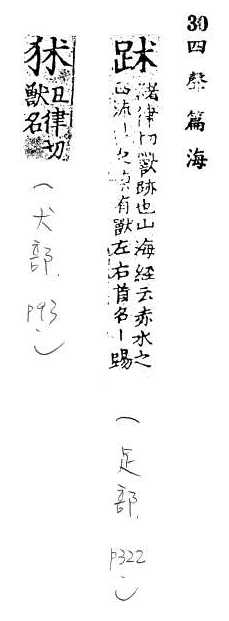 30四聲篇海
䟣
律切獸跡也山海經云赤水之
西流丨之有獸左右首名丨踢
(足部, p322)
丑律切
獸名
(犬部, p93)